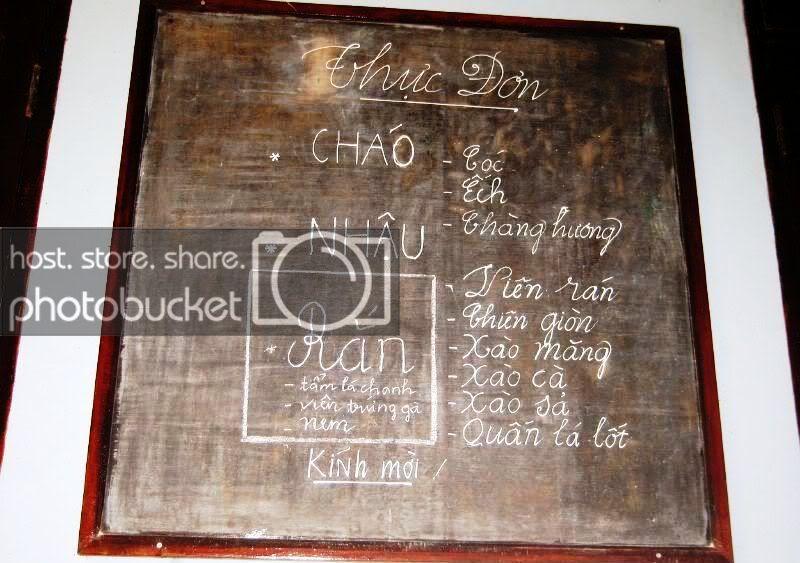 Thực Đơn
* CHÁO
- Cóc
- Ếch
- Chàng hương
* NHẬU
- Viên rán
- Chiên giòn
- Xào măng
- Xào cà
- Xào sả
- Quấn lá lốt
* Rắn
- tẩm lá chanh
- viên trứng gà
- nem
Kính mời /
host. store. share.
photobucket